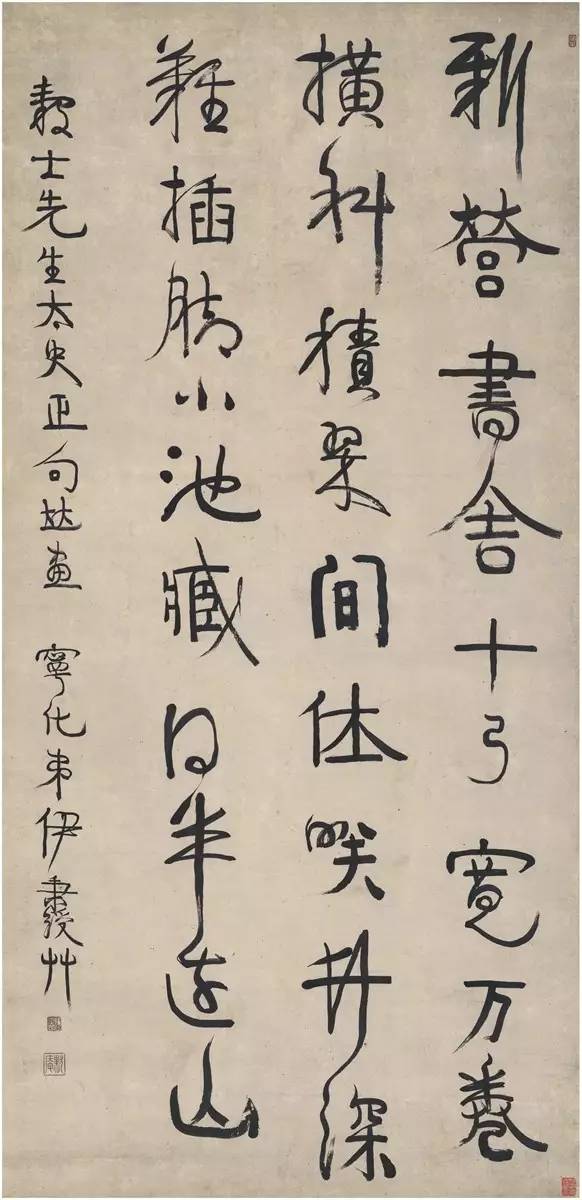 新營書舍十弓寬万卷
橫斜積架間休咲井深
難插腳小池藏得半邊山
穀士先生太史正句並畫 寧化弟伊秉綬艸